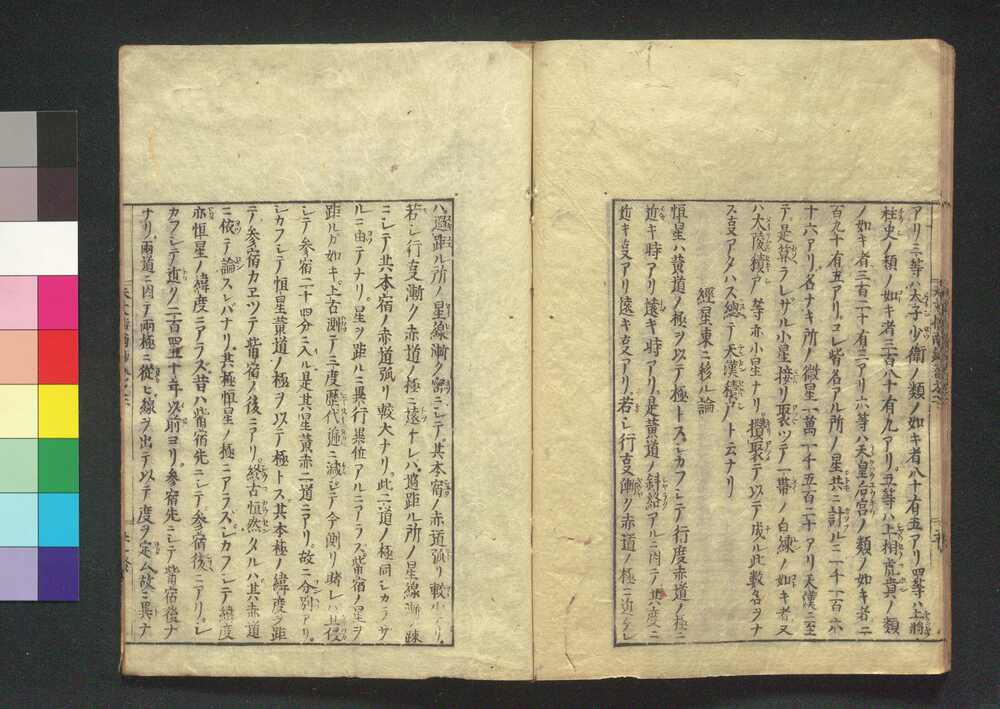 アリ三等ハ太子少衛ノ類ノ如キ者八十有五アリ四等ハ上將
柱史ノ類ノ如キ者三百八十有九アリ五等ハ上相虎賁ノ類
ノ如キ者三百二十有三アリ六等ハ天皇后宮ノ類ノ如キ者二
百九十有五アリコレ皆名アル所ノ星共ニ計ルニ一千一百六
十六アリ名ナキ所ノ微星一萬一千五百二十アリ天漢ニ至
テハ是算ラレザル小星接リ聚ツテ一帶ノ白練ノ如キ者又
ハ大陵積尸等亦小星ナリ攢聚テ以テ成ル此數名ヲナ
ス支アタハス總テ天漢積尸ト云ナリ
經星東ニ移ル論
恒星ハ黄道ノ極ヲ以テ極トスシカフシテ行度赤道ノ極ニ
近キ時アリ遠キ時アリ是黄道ノ斜絡アルニ因テ其度ニ
近キ支アリ遠キ支アリ若シ行支漸ク赤道ノ極ニ近ケレ
ハ過距ル所ノ星線漸ク密ニシテ其本宿ノ赤道弧リ較小ナリ
若シ行支漸ク赤道ノ極ニ遠ケレバ過距ル所ノ星線漸ク疎
ニシテ其本宿ノ赤道弧リ較大ナリ此二道ノ極同シカラサ
ルニ由テナリ星ヲ距ルニ異行異位アルニアラス觜宿ノ星ヲ
距ルガ如キ上古測テ三度歷代逓ニ減シテ今測リ睹レハ且侵
シテ參宿二十四分ニ入ル是其星黄赤二道ニアリ故ニ分別アリ
シカフシテ恒星黄道ノ極ヲ以テ極トス其本極ノ緯度ヲ距
テ參宿カヱツテ觜宿ノ後ニアリ終古恒然タルハ其赤道
ニ依テ論スレバナリ其極恒星ノ極ニアラスシカフシテ緯度
亦恒星ノ緯度ニアラズ昔ハ觜宿先ニシテ參宿後ニアリシ
カフシテ近ク二百四五十年以前ヨリ參宿先ニシテ觜宿後ナ
ナリ兩道ニ因テ兩極ニ從ヒ線ヲ出テ以テ度ヲ定ム故ニ異ナ